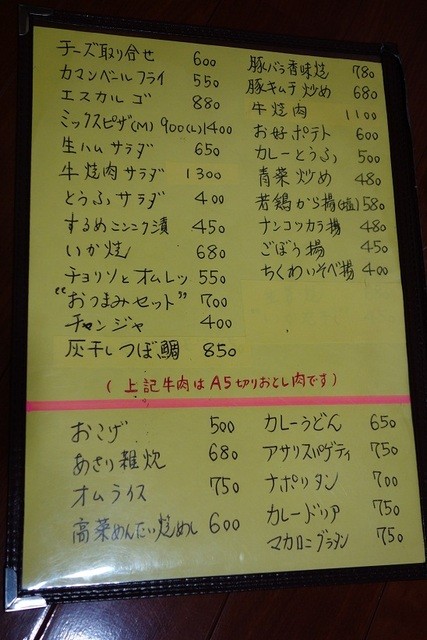 チーズ取り合せ 600
カマンベールフライ 550
エスカルゴ 880
ミックスピザ(M) 900 (L)1400
生ハムサラダ 650
牛焼肉サラダ 1300
とうふサラダ 400
するめニンニク漬 450
いか焼 680
チョリソとオムレツ 550
"おつまみセット" 700
チャンジャ 400
灰干しつぼ鯛 850
豚バラ香味焼 780
豚キムチ炒め 680
牛焼肉 1100
お好ポテト 600
カレーとうふ 500
青菜炒め 480
若鶏から揚(塩) 580
ナンコツカラ揚 480
ごぼう揚 450
ちくわいそべ揚 400
(上記牛肉はA5切りおとし肉です)
おこげ 500
あさり雑炊 680
オムライス 750
高菜めんたい焼めし 600
カレーうどん 650
アサリスパゲティ 750
ナポリタン 700
カレードリア 750
マカロニグラタン 750